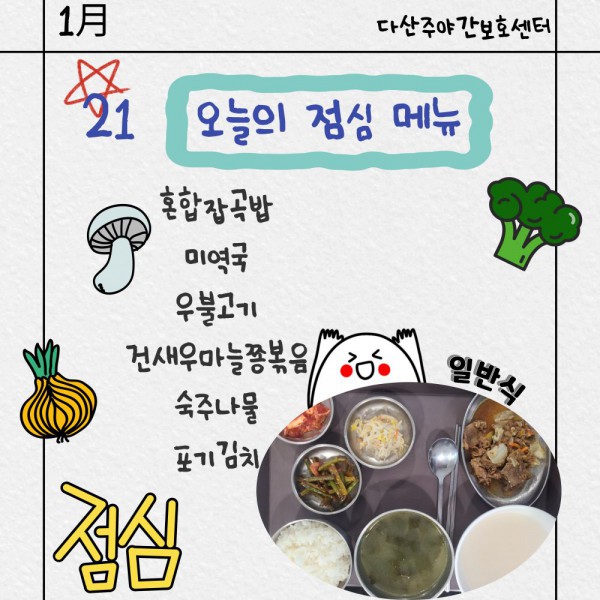 1月
다산주야간보호센터
21
오늘의 점심 메뉴
혼합잡곡밥
미역국
우불고기
건새우마늘쫑볶음
숙주나물
포기김치
일반식
점심